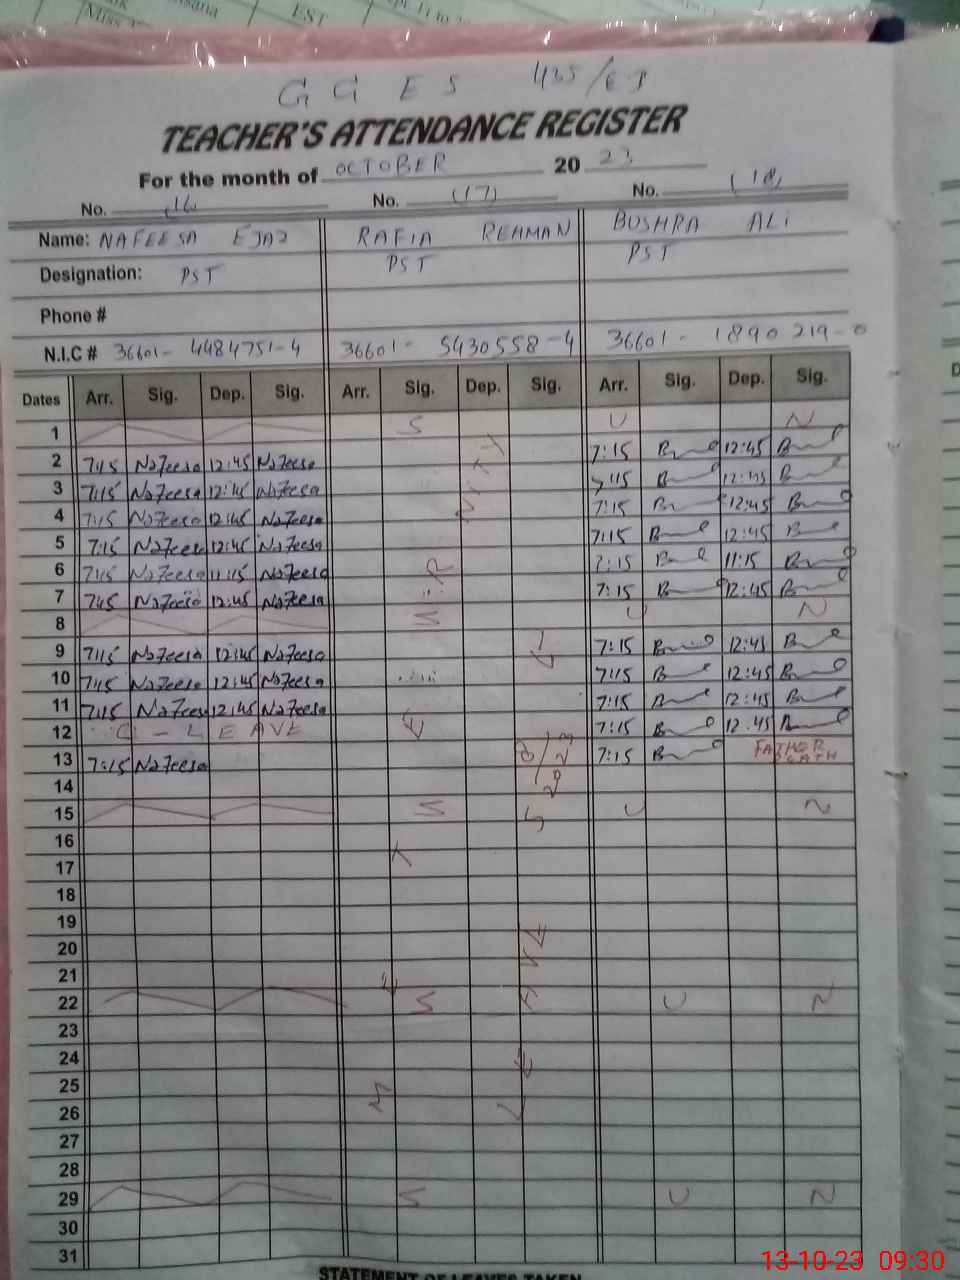 Miss
EST
G G E S 435/EB
TEACHER'S ATTENDANCE REGISTER
For the month of OCTOBER 20 23
No. (16) No. (17) No. (18)
Name: NAFEESA EJAZ RAFIA REHMAN BUSHRA ALI
Designation: PST PST PST
Phone #
N.I.C # 36601- 4484751-4 36601- 5430558-4 36601- 1890219-0
Dates Arr. Sig. Dep. Sig. Arr. Sig. Dep. Sig. Arr. Sig. Dep. Sig.
1 S U N
2 7:15 Nafeesa 12:45 Nafeesa 7:15 12:45
3 7:15 Nafeesa 12:45 Nafeesa 7:15 12:45
4 7:15 Nafeesa 12:45 Nafeesa 7:15 12:45
5 7:15 Nafeesa 12:45 Nafeesa 7:15 12:45
6 7:15 Nafeesa 11:15 Nafeesa 7:15 11:15
7 7:15 Nafeesa 12:45 Nafeesa 7:15 12:45
8 S U N
9 7:15 Nafeesa 12:45 Nafeesa 7:15 12:45
10 7:15 Nafeesa 12:45 Nafeesa 7:15 12:45
11 7:15 Nafeesa 12:45 Nafeesa 7:15 12:45
12 C - LEAVE 7:15 12:45
13 7:15 Nafeesa 7:15 FATHER DEATH
14
15 S U N
16
17
18
19
20
21
22 S U N
23
24
25
26
27
28
29 S U N
30
31
MATERNITY
LEAVE
STATEMENT OF LEAVES TAKEN
13-10-23 09:30